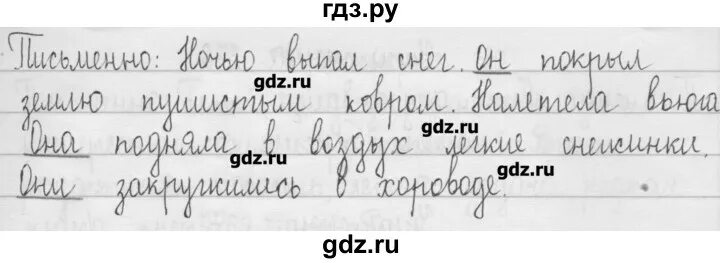 гдз.ру
Письменно: Ночью выпал снег. Он покрыл
gdz.ru
землю пушистым ковром. Налетела вьюга
gdz.ru
gdz.ru
Она подняла в воздух легкие снежинки.
Они закружились в хороводе.
gdz.ru
gdz.ru